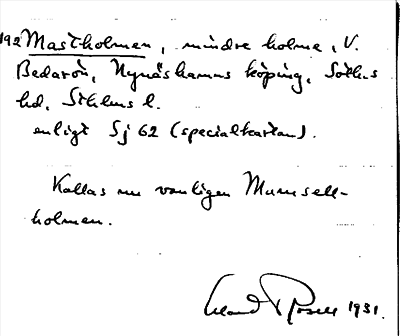 192 Mastholmen, mindre holme, V.
Bedarön, Nynäshamns köping, Sotholms
hd, Sthlms l.
enligt Sj 62 (specialkartan).
Kallas nu vanligen Mamsell-
holmen.
1931.